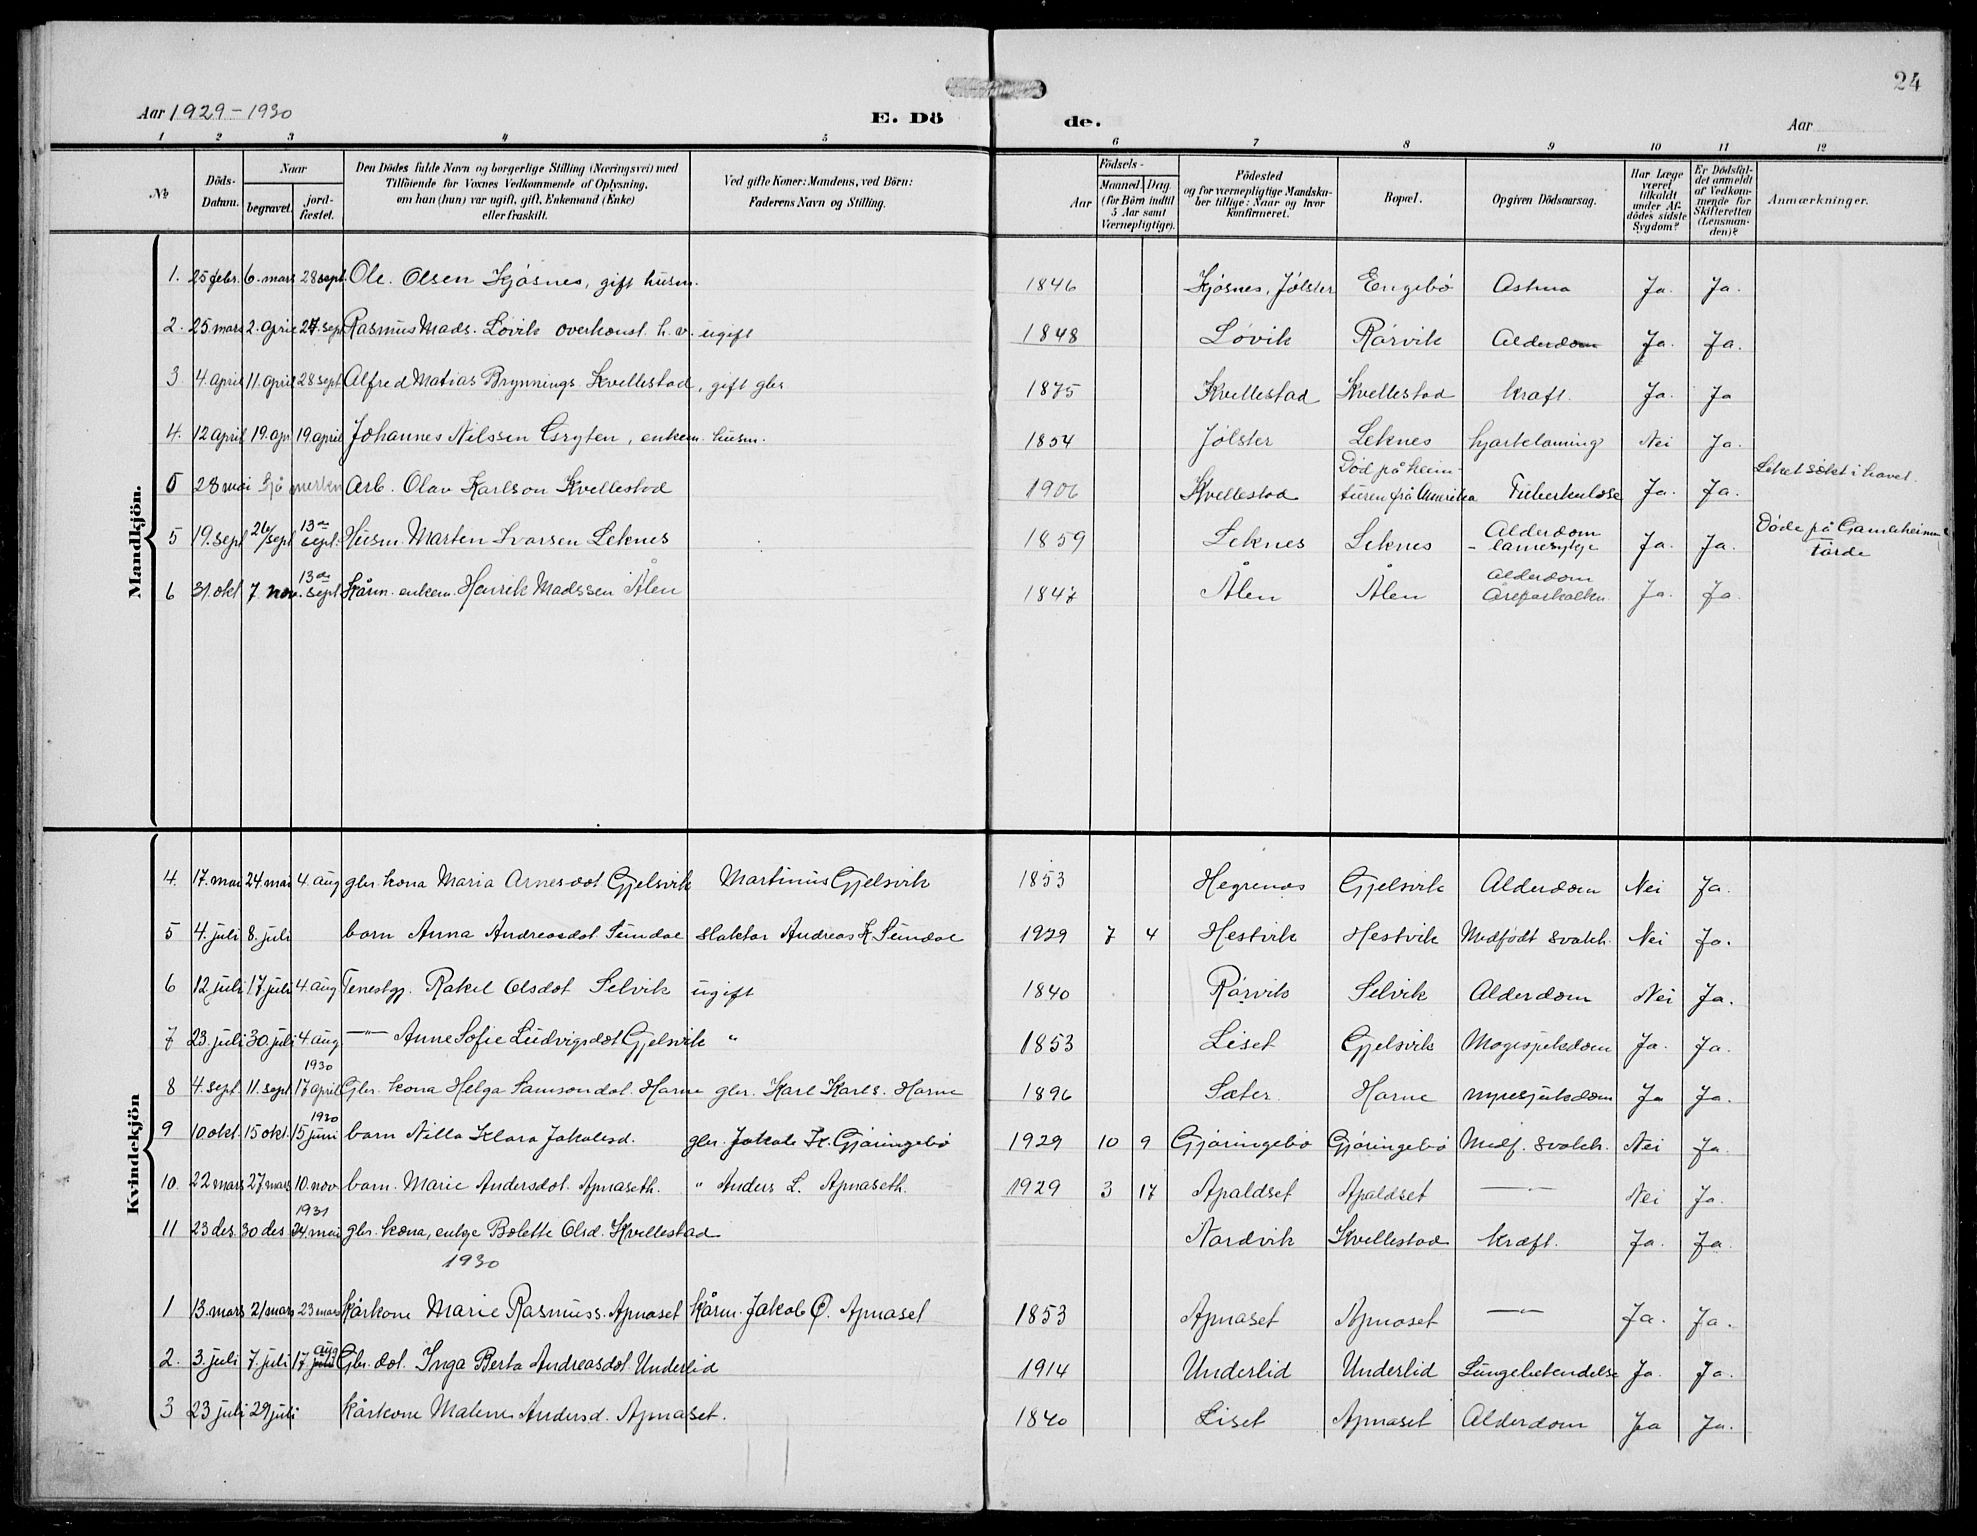 24
Aar 1929-1930 E. Dö de. Aar
1 2 3 4 5 6 7 8 9 10 11 12
№ Döds-Datum. Naar begravet. jordfæstet. Den Dödes fulde Navn og borgerlige Stilling (Næringsvei) med Tilföiende for Voxnes Vedkommende af Oplysning, om han (hun) var ugift, gift, Enkemand (Enke) eller fraskilt. Ved gifte Koner: Mandens, ved Börn: Faderens Navn og Stilling. Aar Födsels- Maaned. Dag. (for Börn indtil 5 Aar samt Værnepligtige). Födested og for værnepligtige Mandskaber tillige: Naar og hvor Konfirmeret. Bopæl. Opgiven Dödsaarsag. Har Læge været tilkaldt under Afdödes sidste Sygdom? Er Dödsfaldet anmeldt af Vedkommende for Skifteretten (Lensmanden)? Anmærkninger.
Mandkjön.
1. 25 febr. 6. mars 28 sept. Ole Olsen Kjøsnes, gift husm. 1846 Kjøsnes, Jølster Engebø Astma Ja. Ja.
2. 25 mars 2. april 27. sept Rasmus Mads. Løvik overkonst. h. v. ugift 1848 Løvik Rørvik Alderdom Ja. Ja.
3 4. april 11. april 28 sept Alfred Matias Brynnings. Kvellestad, gift gbr 1875 Kvellestad Kvellestad kræft. Ja. Ja
4. 12 april 19. apr 19. april Johannes Nilssen Gryten, enkem. husm. 1854 Jølster Leknes hjartelaming Nei Ja.
5 28 mai Arb. Olav Karlson Kvellestad 1906 Kvellestad Død på heimturen frå Amerika Tuberkulose Ja. Ja. Liket søkt i havet.
5 19. sept 26/sept 13de sept. Husm. Marten Ivarsen Leknes 1859 Leknes Leknes Alderdom - lamesykje Ja. Ja. Døde på Gamleheimen Førde
6 31. okt 7. nov. 13de sept. Kårm. enkem. Henrik Madssen Ålen 1847 Ålen Ålen Alderdom Åreforkalken. Ja. Ja.
Kvindekjön
4. 17. mai 24 mai 4. aug gbr. kona Maria Arnesdot Gjelsvik Martinus Gjelsvik 1853 Hegrenes Gjelsvik Alderdom Nei Ja.
5 4. juli 8. juli born Anna Andreasdot. Sundae slaktar Andreas K Sundae 1929 7 4 Hestvik Hestvik Medfødt svakh. Nei Ja.
6 12 juli 17 juli 4. aug Tenestgj. Rakel Olsdot Selvik ugift 1840 Rørvik Selvik Alderdom Nei Ja.
7 23. juli 30. juli 4 aug —"— Anne Sofie Ludvigsdot Gjelsvik " 1853 Liset Gjelsvik Magesjukdom Ja. Ja.
8 4. sept. 11. sept 1930 17 april Gbr. kona Helga Samsondot. Horne gbr. Karl Karls. Horne 1896 Sæter Horne nyresjukdom Ja Ja.
9 10. okt. 15 okt. 1930 15 juni born Nilla Klara Jakobsd. gbr. Jakob K. Gjøringebø 1929 10 9 Gjøringebø Gjøringebø Medf. svakh. Nei Ja.
10. 22 mars 27 mars 10. nov born. Marie Andersdot. Apnaseth. " Anders L. Apnaseth. 1929 3 17 Apaldset Apaldset —"— Nei Ja.
11 23 des. 30 des 1931 24. mai gbr. kona, enkje Bolette Olsd. Kvellestad Nordvik Kvellestad kræft. Ja. Ja.
1930
1 13. mars 21 mars 23 mars kårkone Marie Rasmuss. Apnaset kårm. Jakob O. Apnaset 1853 Apnaset Apnaset —"— Ja. Ja.
2. 3. juli 7. juli 17 juli aug Gbr. dot. Inga Berta Andreasdot Underlid 1914 Underlid Underlid Lungebetendelse Ja. Ja.
3 23 juli 29 juli kårkone Malene Andersd. Apnaset. 1840 Liset Apnaset Alderdom Ja Ja.